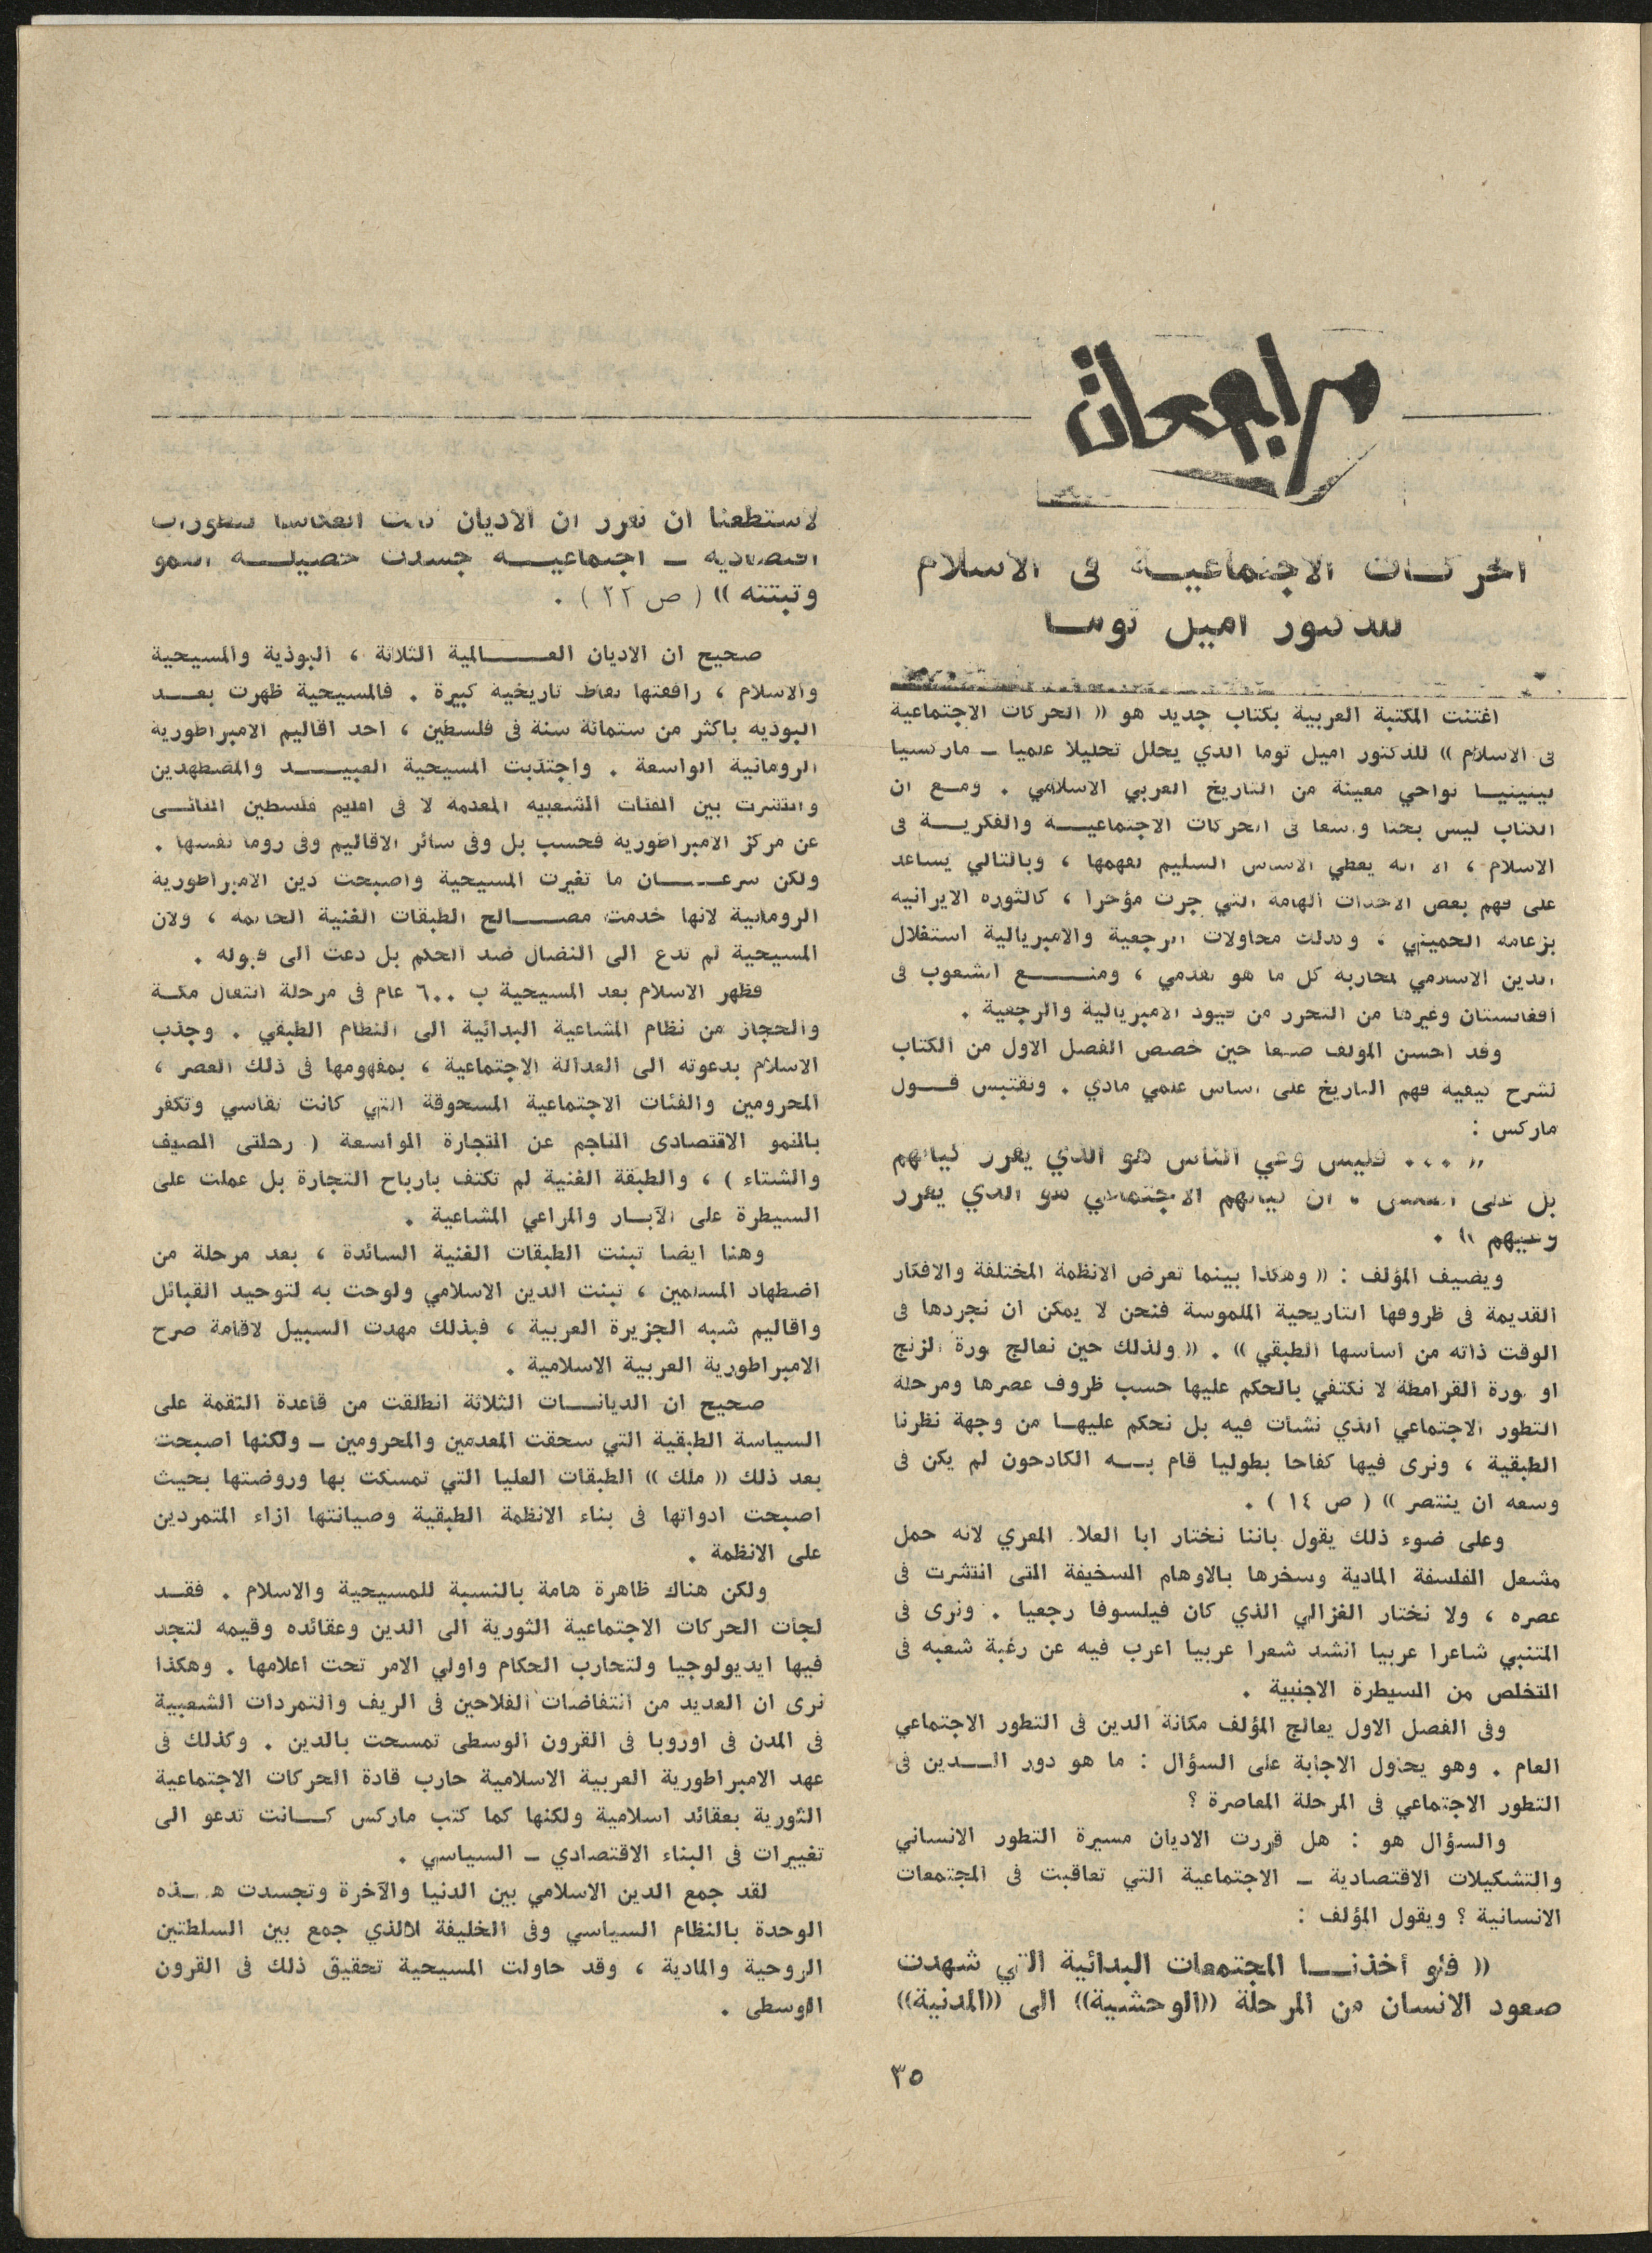 مراجعات
الحركات الاجتماعية فى الاسلام
للدكتور اميل توما
اغتنت المكتبة العربية بكتاب جديد هو (( الحركات الاجتماعية
فى الاسلام )) للدكتور اميل توما الذي يحلل تحليلا علميا ـ ماركسيا
لينينيا نواحي معينة من التاريخ العربي الاسلامي . ومع ان
الكتاب ليس بحثا واسعا فى الحركات الاجتماعية والفكرية فى
الاسلام ، الا انه يعطي الاساس السليم لفهمها ، وبالتالي يساعد
على فهم بعض الاحداث الهامة التي جرت مؤخرا ، كالثورة الايرانية
بزعامة الخميني ، وكذلك محاولات الرجعية والامبريالية استغلال
الدين الاسلامي لمحاربة كل ما هو تقدمي ، ومنع الشعوب فى
افغانستان وغيرها من التحرر من قيود الامبريالية والرجعية .
وقد احسن المؤلف صنعا حين خصص الفصل الاول من الكتاب
لشرح كيفية فهم التاريخ على اساس علمي مادي . ونقتبس قول
ماركس :
(( ... فليس وعي الناس هو الذي يقرر كيانهم
بل على العكس ، ان كيانهم الاجتماعي هو الذي يقرر
وعيهم )) .
ويضيف المؤلف : (( وهكذا بينما نعرض الانظمة المختلفة والافكار
القديمة فى ظروفها التاريخية الملموسة فنحن لا يمكن ان نجردها فى
الوقت ذاته من اساسها الطبقي )) . (( ولذلك حين نعالج ثورة الزنج
او ثورة القرامطة لا نكتفي بالحكم عليها حسب ظروف عصرها ومرحلة
التطور الاجتماعي الذي نشأت فيه بل نحكم عليها من وجهة نظرنا
الطبقية ، ونرى فيها كفاحا بطوليا قام به الكادحون لم يكن فى
وسعه ان ينتصر )) ( ص ١٤ ) .
وعلى ضوء ذلك يقول باننا نختار ابا العلاء المعري لانه حمل
مشعل الفلسفة المادية وسخرها بالاوهام السخيفة التى انتشرت فى
عصره ، ولا نختار الغزالي الذي كان فيلسوفا رجعيا . ونرى فى
المتنبي شاعرا عربيا انشد شعرا عربيا اعرب فيه عن رغبة شعبه فى
التخلص من السيطرة الاجنبية .
وفى الفصل الاول يعالج المؤلف مكانة الدين فى التطور الاجتماعي
العام . وهو يحاول الاجابة على السؤال : ما هو دور الدين فى
التطور الاجتماعي فى المرحلة المعاصرة ؟
والسؤال هو : هل قررت الاديان مسيرة التطور الانساني
والتشكيلات الاقتصادية ـ الاجتماعية التي تعاقبت فى المجتمعات
الانسانية ؟ ويقول المؤلف :
(( فلو أخذنا المجتمعات البدائية التي شهدت
صعود الانسان من المرحلة ((الوحشية)) الى ((المدنية))
لاستطعنا ان نقرر ان الاديان كانت انعكاسا لتطورات
اقتصادية ـ اجتماعية جسدت حصيلة النمو
وثبتته )) ( ص ٢٢ ) .
صحيح ان الاديان العالمية الثلاثة ، البوذية والمسيحية
والاسلام ، رافقتها نقاط تاريخية كبيرة . فالمسيحية ظهرت بعد
البوذية باكثر من ستمائة سنة فى فلسطين ، احد اقاليم الامبراطورية
الرومانية الواسعة . واجتذبت المسيحية العبيد والمضطهدين
وانتشرت بين الفئات الشعبية المعدمة لا فى اقليم فلسطين النائى
عن مركز الامبراطورية فحسب بل وفى سائر الاقاليم وفى روما نفسها .
ولكن سرعان ما تغيرت المسيحية واصبحت دين الامبراطورية
الرومانية لانها خدمت مصالح الطبقات الغنية الحاكمة ، ولان
المسيحية لم تدع الى النضال ضد الحكم بل دعت الى قبوله .
فظهر الاسلام بعد المسيحية ب ٦٠٠ عام فى مرحلة انتقال مكة
والحجاز من نظام المشاعية البدائية الى النظام الطبقي . وجذب
الاسلام بدعوته الى العدالة الاجتماعية ، بمفهومها فى ذلك العصر ،
المحرومين والفئات الاجتماعية المسحوقة التي كانت تقاسي وتكفر
بالنمو الاقتصادى الناجم عن التجارة الواسعة ( رحلتى الصيف
والشتاء ) ، والطبقة الغنية لم تكتف بارباح التجارة بل عملت على
السيطرة على الآبار والمراعي المشاعية .
وهنا ايضا تبنت الطبقات الغنية السائدة ، بعد مرحلة من
اضطهاد المسلمين ، تبنت الدين الاسلامي ولوحت به لتوحيد القبائل
واقاليم شبه الجزيرة العربية ، فبذلك مهدت السبيل لاقامة صرح
الامبراطورية العربية الاسلامية .
صحيح ان الديانات الثلاثة انطلقت من قاعدة النقمة على
السياسة الطبقية التي سحقت المعدمين والمحرومين ـ ولكنها اصبحت
بعد ذلك (( ملك )) الطبقات العليا التي تمسكت بها وروضتها بحيث
اصبحت ادواتها فى بناء الانظمة الطبقية وصيانتها ازاء المتمردين
على الانظمة .
ولكن هناك ظاهرة هامة بالنسبة للمسيحية والاسلام . فقد
لجأت الحركات الاجتماعية الثورية الى الدين وعقائده وقيمه لتجد
فيها ايديولوجيا ولتحارب الحكام واولي الامر تحت اعلامها . وهكذا
نرى ان العديد من انتفاضات الفلاحين فى الريف والتمردات الشعبية
فى المدن فى اوروبا فى القرون الوسطى تمسحت بالدين . وكذلك فى
عهد الامبراطورية العربية الاسلامية حارب قادة الحركات الاجتماعية
الثورية بعقائد اسلامية ولكنها كما كتب ماركس كانت تدعو الى
تغييرات فى البناء الاقتصادي ـ السياسي .
لقد جمع الدين الاسلامي بين الدنيا والآخرة وتجسدت هذه
الوحدة بالنظام السياسي وفى الخليفة لالذي جمع بين السلطتين
الروحية والمادية ، وقد حاولت المسيحية تحقيق ذلك فى القرون
الوسطى .
٣٥